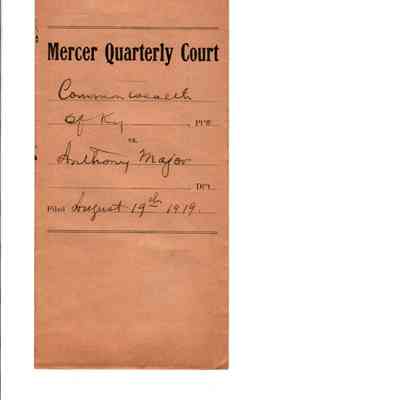 Mercer Quarterly Court
Commonwealth
of Ky, Pl'ff.
vs.
Anthony Major
Def't.
Filed August 19th 1919.